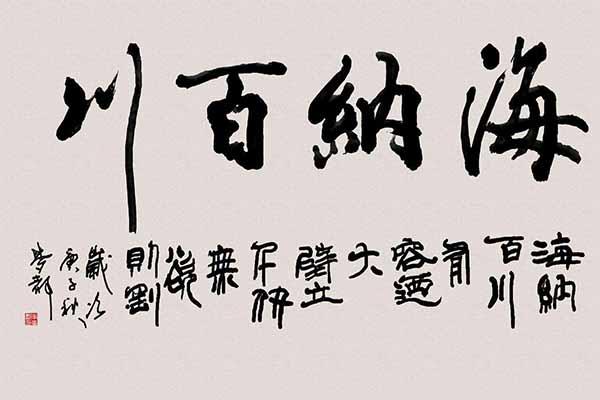 海納百川
海納
百川
有
容迺
大
壁立
千仞
無
欲
則剛
歲次
庚子秋